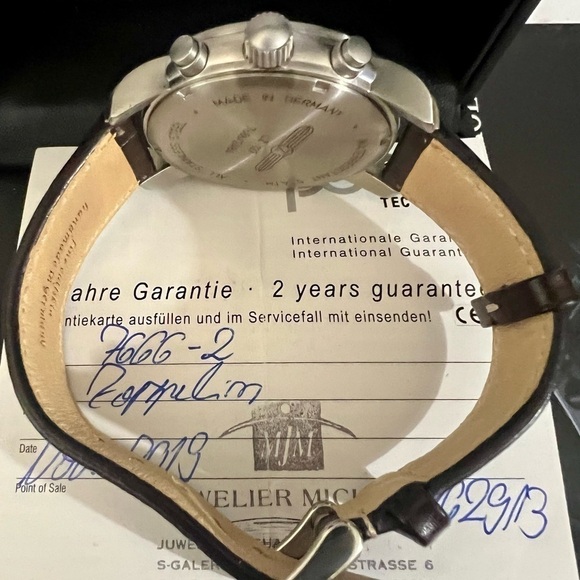 MADE IN GERMANY
TEC
Internationale Garan
International Guarant
ahre Garantie · 2 years guarantee
ntiekarte ausfüllen und im Servicefall mit einsenden! CE
7666-2
Zeppelin
MJM
Date
2019
Point of Sale
WELIER MICH
629/13
JUWE
S-GALER
STRASSE 6
handmade in Germany